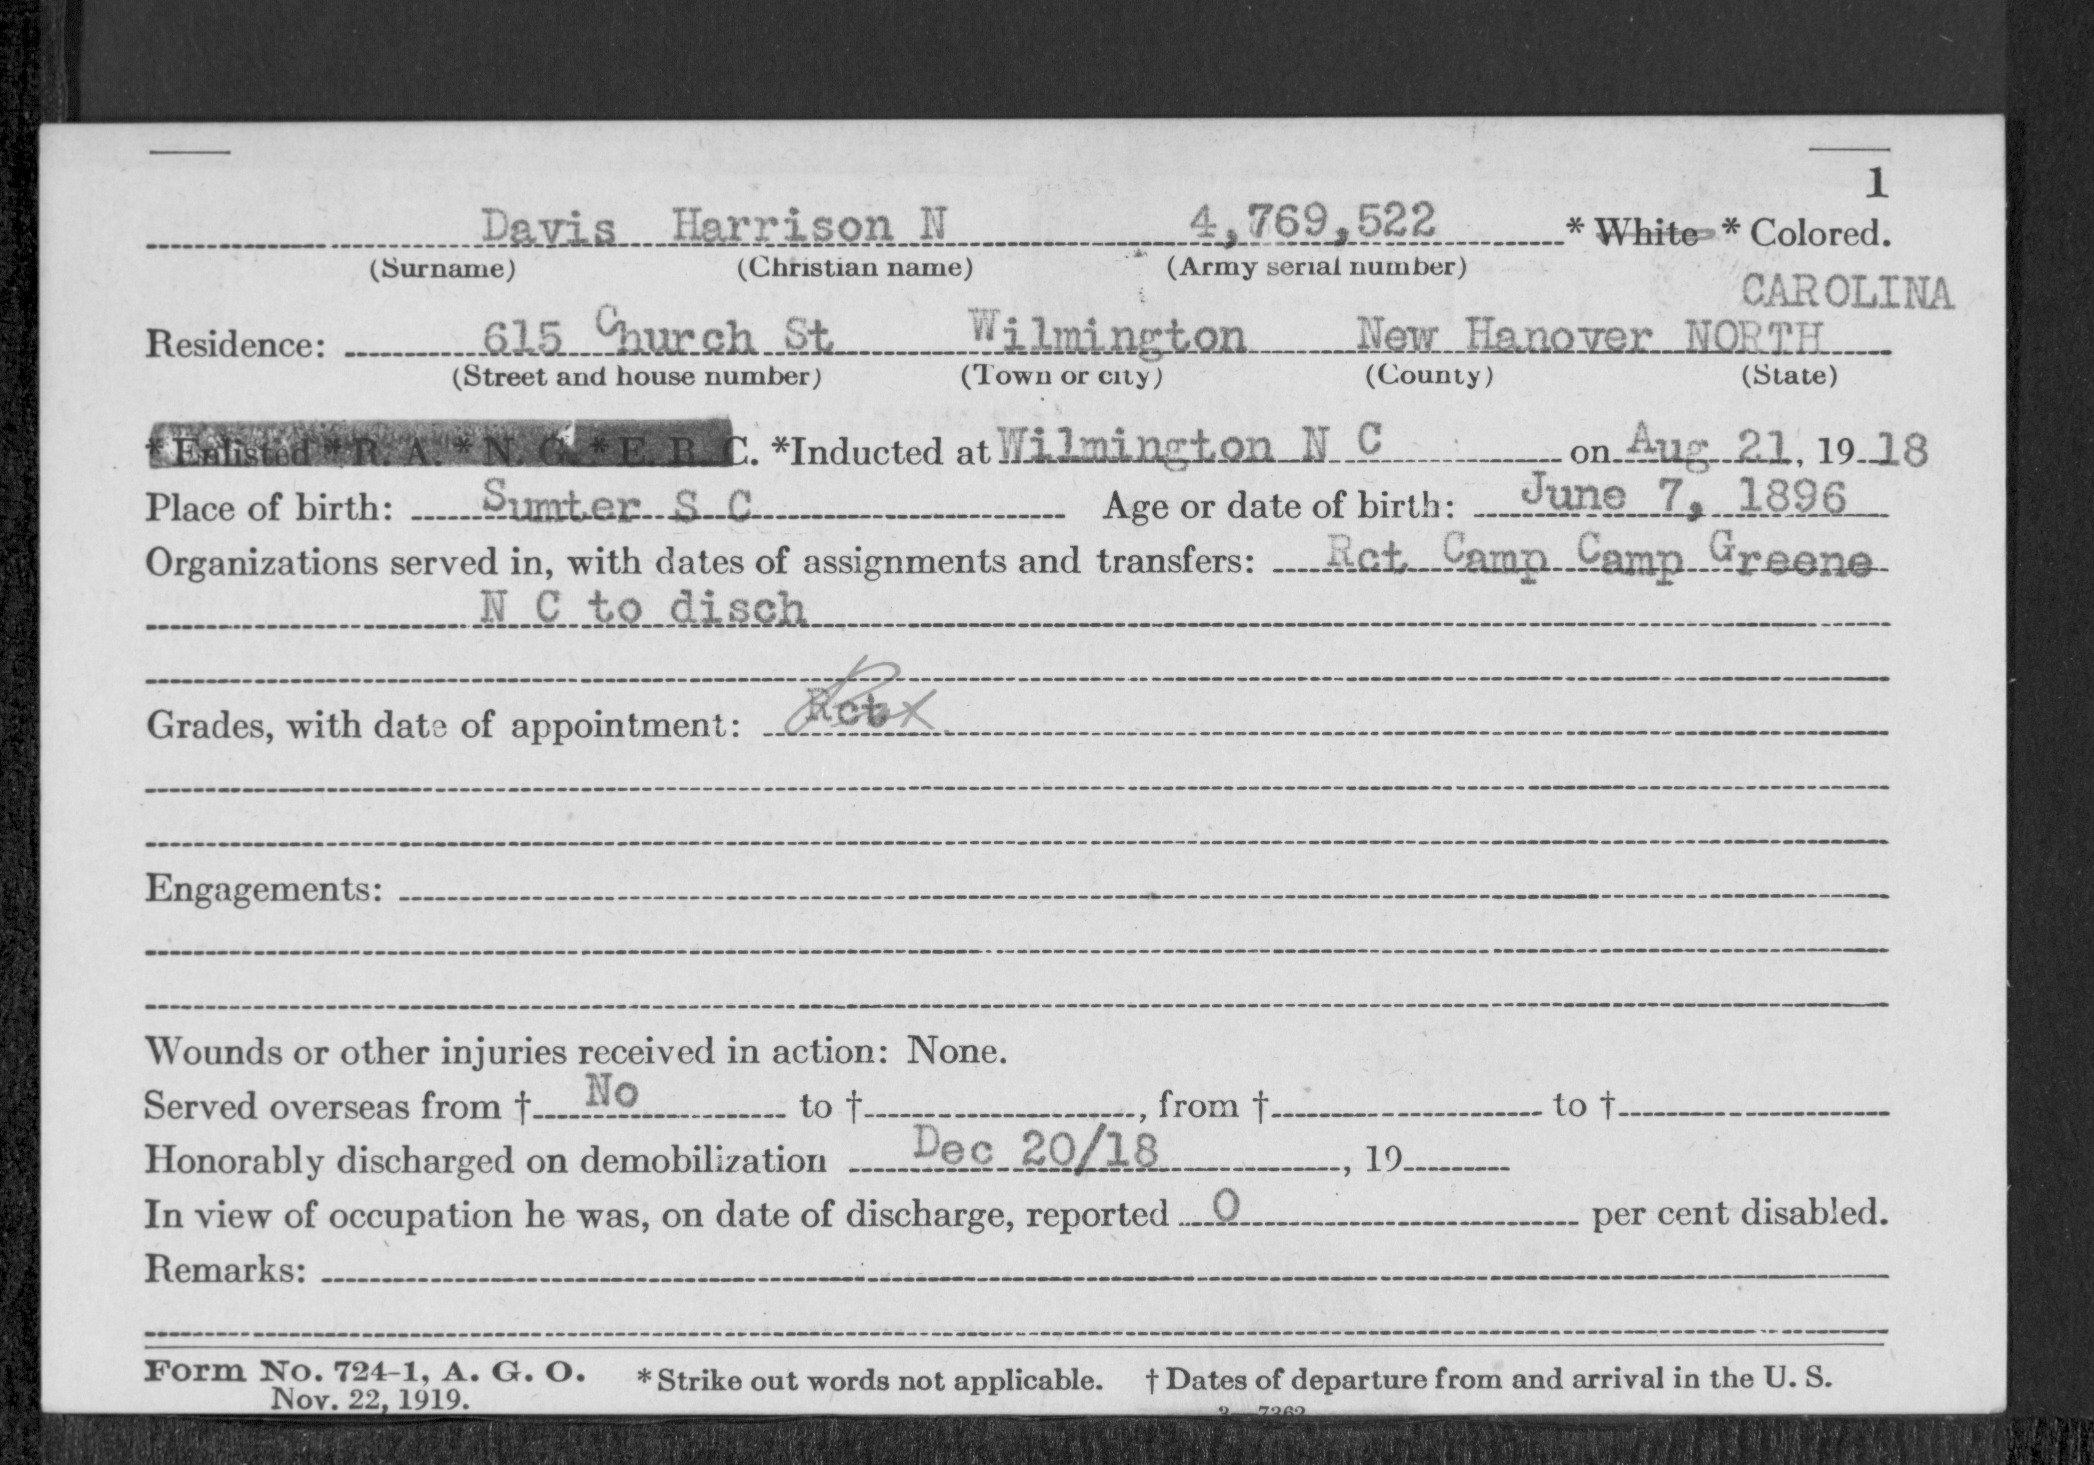 1
Davis Harrison N 4,769,522 * White * Colored.
(Surname) (Christian name) (Army serial number)
CAROLINA
Residence: 615 Church St Wilmington New Hanover NORTH
(Street and house number) (Town or city) (County) (State)
* Enlisted * R. A. * N. G. * E. R. C. *Inducted at Wilmington N C on Aug 21, 19 18
Place of birth: Sumter S C Age or date of birth: June 7, 1896
Organizations served in, with dates of assignments and transfers: Rct Camp Camp Greene
N C to disch
Grades, with date of appointment: Rct
Engagements:
Wounds or other injuries received in action: None.
Served overseas from † No to †, from † to †
Honorably discharged on demobilization Dec 20/18, 19
In view of occupation he was, on date of discharge, reported 0 per cent disabled.
Remarks:
Form No. 724-1, A. G. O. * Strike out words not applicable. † Dates of departure from and arrival in the U. S.
Nov. 22, 1919.